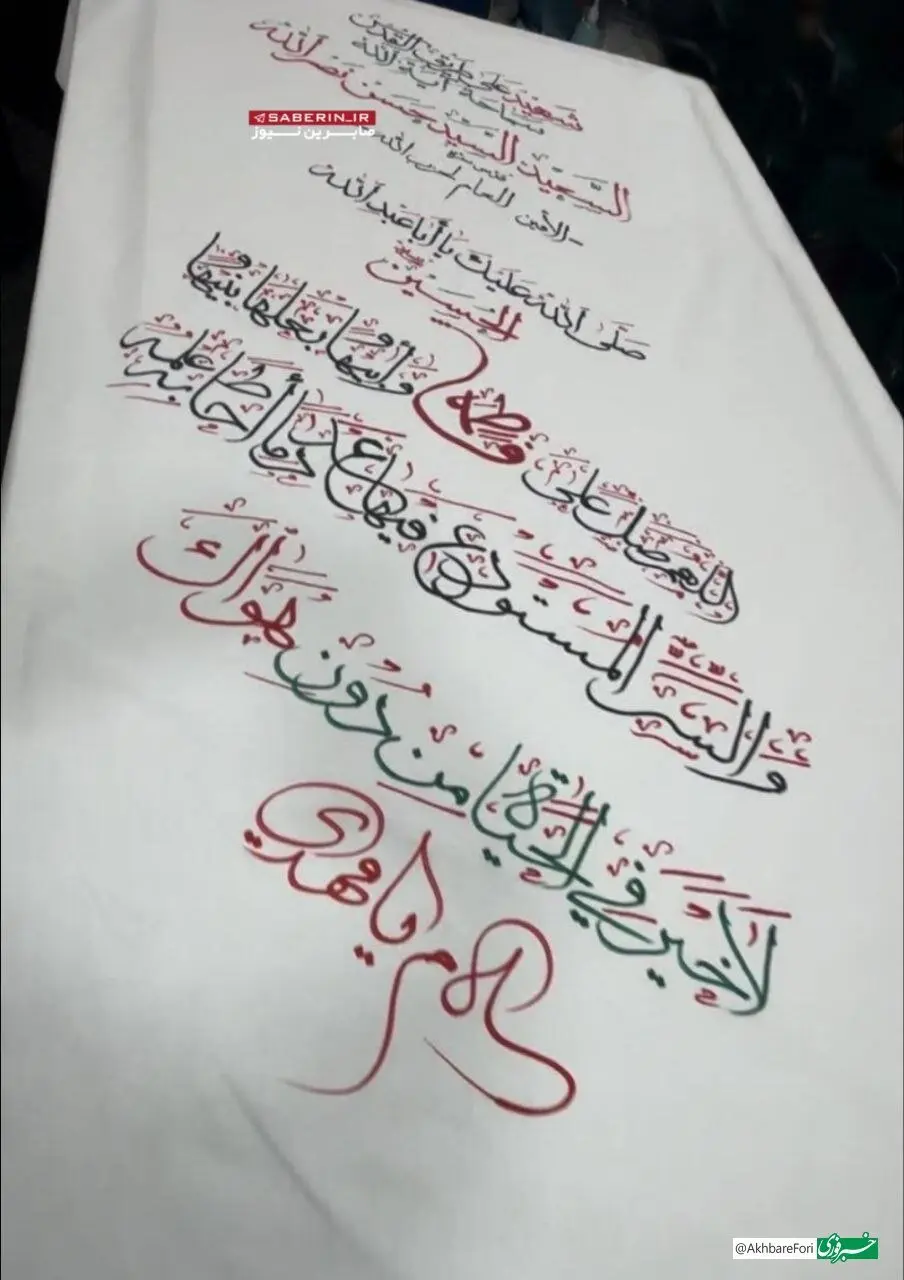 شهيد على طريق القدس
سماحة آية الله
السعيد السيد حسن نصر الله
SABERIN_IR
صابرین نیوز
الأمين العام لحزب الله
صَلَّى اللهُ عَلَيْكَ يَا أَبَا عَبْدِ اللهِ
الحسين
اللهم صل على فاطمة وأبيها وبعلها وبنيها
والسر المستودع فيها عدد ما أحاط به علمك
لا خير في الحياة من دون هواك
يا مهدي
@AkhbareFori
خبرفوری